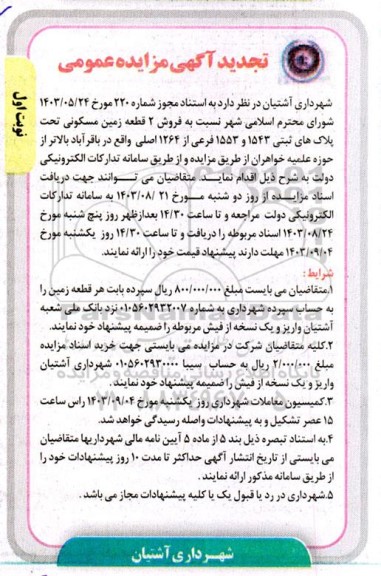 تجدید آگهی مزایده عمومی
نوبت اول
شهرداری آشتیان در نظر دارد به استناد مجوز شماره ۲۲۰ مورخ ۱۴۰۳/۰۵/۲۴
شورای محترم اسلامی شهر نسبت به فروش ۲ قطعه زمین مسکونی تحت
پلاک های ثبتی ۱۵۴۳ و ۱۵۵۳ فرعی از ۱۲۶۴ اصلی واقع در باقرآباد بالاتر از
حوزه علمیه خواهران از طریق مزایده و از طریق سامانه تدارکات الکترونیکی
دولت به شرح ذیل اقدام نماید. متقاضیان می توانند جهت دریافت
اسناد مزایده از روز دو شنبه مورخ ۲۱ /۱۴۰۳/۰۸ به سامانه تدارکات
الکترونیکی دولت مراجعه و تا ساعت ۱۴/۳۰ بعدازظهر روز پنج شنبه مورخ
۱۴۰۳/۰۸/۲۴ اسناد مربوطه را دریافت و تا ساعت ۱۴/۳۰ روز یکشنبه مورخ
۱۴۰۳/۰۹/۰۴ مهلت دارند پیشنهاد قیمت خود را ارائه نمایند.
شرایط :
۱.متقاضیان می بایست مبلغ ۸۰۰/۰۰۰/۰۰۰ ریال سپرده بابت هر قطعه زمین را
به حساب سپرده شهرداری به شماره ۰۱۰۵۶۰۲۹۳۲۰۰۷ نزد بانک ملی شعبه
آشتیان واریز و یک نسخه از فیش مربوطه را ضمیمه پیشنهاد خود نمایند.
۲.کلیه متقاضیان شرکت در مزایده می بایستی جهت خرید اسناد مزایده
مبلغ ۲/۰۰۰/۰۰۰ ریال به حساب سیبا ۰۱۰۵۶۰۲۹۳۰۰۰۰ شهرداری آشتیان
واریز و یک نسخه از فیش را ضمیمه پیشنهاد خود نمایند .
۳.کمیسیون معاملات شهرداری روز یکشنبه مورخ ۱۴۰۳/۰۹/۰۴ راس ساعت
۱۵ عصر تشکیل و به پیشنهادات واصله رسیدگی خواهد شد.
۴.به استناد تبصره ذیل بند ۵ از ماده ۵ آیین نامه مالی شهرداریها متقاضیان
می بایستی از تاریخ انتشار آگهی حداکثر تا مدت ۱۰ روز پیشنهادات خود را
از طریق سامانه مذکور ارائه نمایند.
۵.شهرداری در رد یا قبول یک یا کلیه پیشنهادات مجاز می باشد .
شهرداری آشتیان